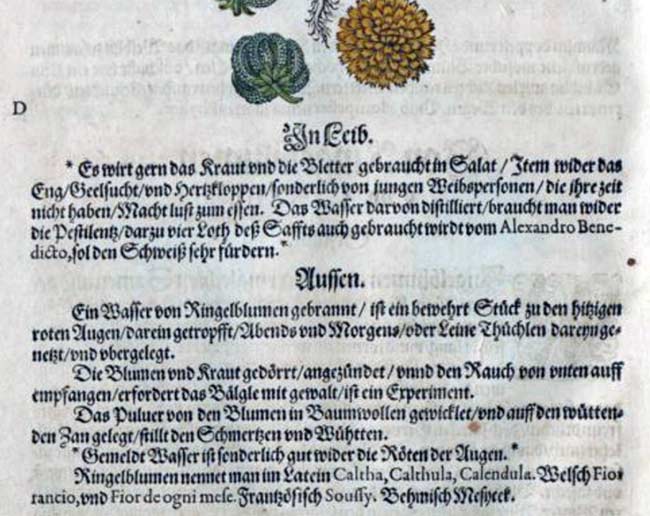 D
In Leib.
* Es wirt gern das Kraut vnd die Bletter gebraucht in Salat / Item wider das
Eng/Geelsucht/vnd Hertzkloppen/sonderlich von jungen Weibspersonen/die jhre zeit
nicht haben/Macht lust zum essen. Das Wasser darvon distilliert/braucht man wider
die Pestilentz/darzu vier Loth deß Saffts auch gebraucht wirdt vom Alexandro Bene-
dicto,sol den Schweiß sehr fürdern.*
Aussen.
Ein Wasser von Ringelblumen gebrannt / ist ein bewehrt Stück zu den hitzigen
roten Augen/darein getropfft/Abends vnd Morgens/oder Leine Thüchlen dareyn ge-
netzt/vnd vbergelegt.
Die Blumen vnd Kraut gedörrt/angezündet/vnnd den Rauch von vnten auff
empfangen/erfordert das Bälgle mit gewalt/ist ein Experiment.
Das Puluer von den Blumen in Baumwollen gewicklet/vnd auff den wütten-
den Zan gelegt/stillt den Schmertzen vnd Wühtten.
* Gemeldt Wasser ist sonderlich gut wider die Röten der Augen. *
Ringelblumen nennet man im Latein Caltha, Calthula, Calendula. Welsch Fior
rancio,vnd Fior de ogni mese. Frantzösisch Soussy. Behmisch Mesycek.